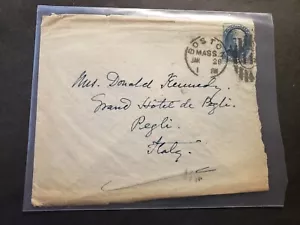 BOSTON
MASS.
JAN 28
Mrs. Donald Kennedy,
Grand Hôtel de Pegli
Pegli
Italy.